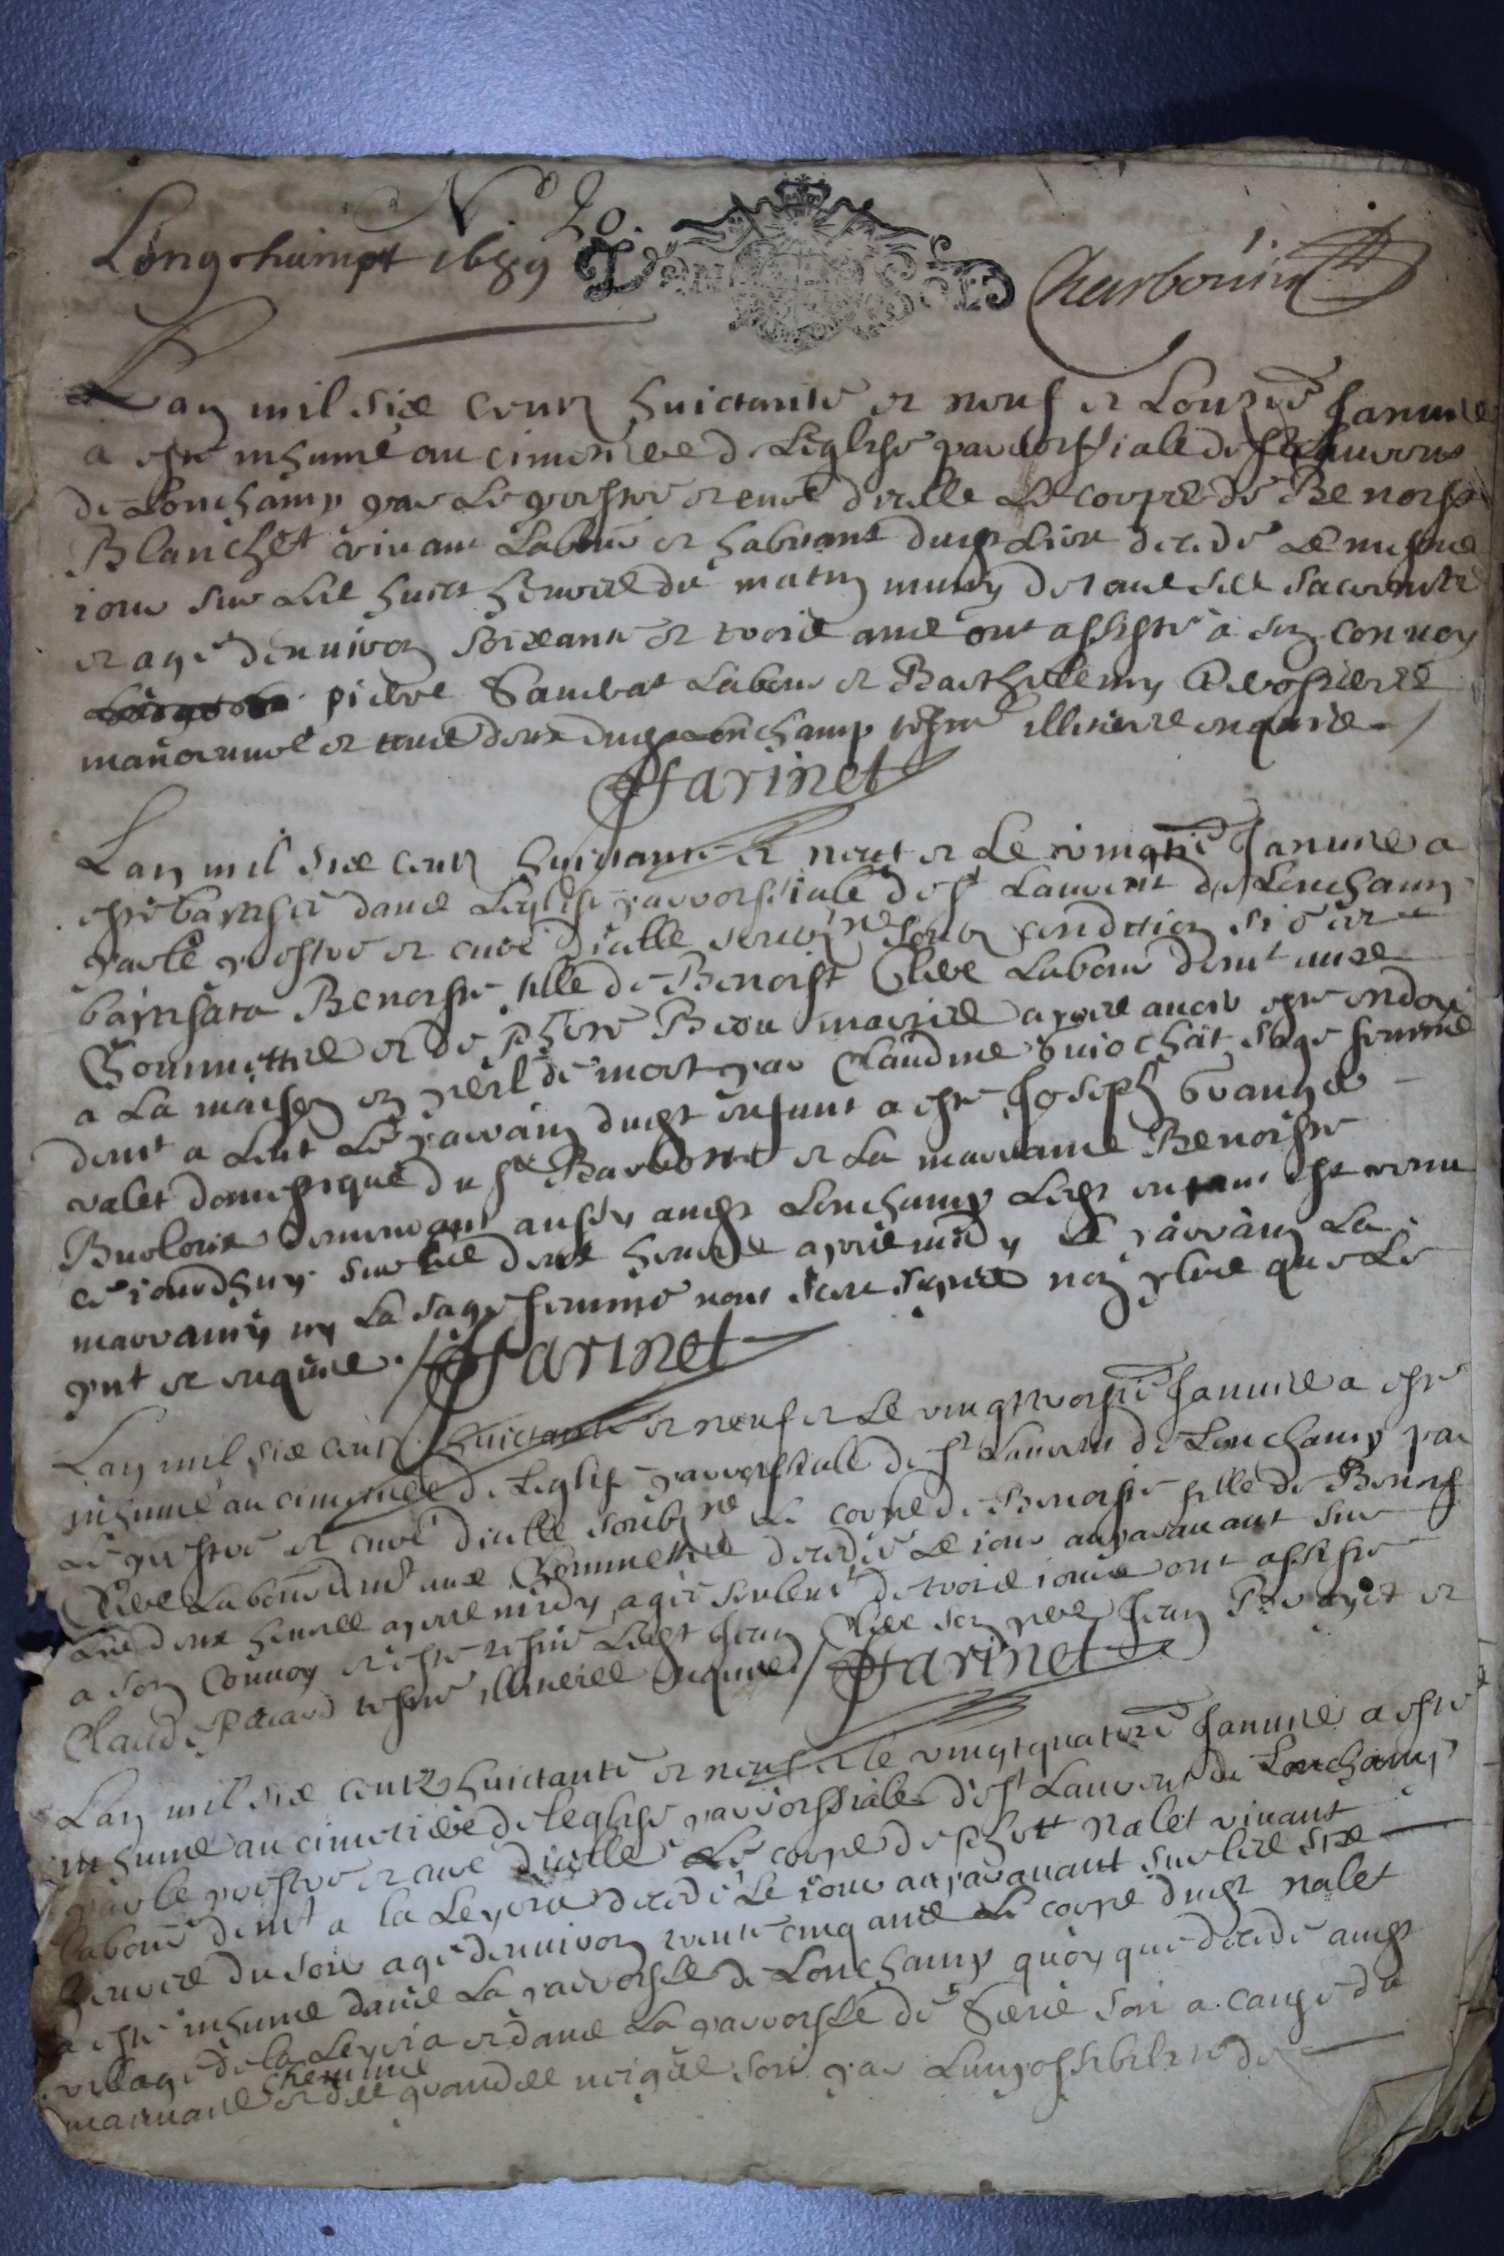 N° 20.
Longchampt 1689
DEUX SOLS
1.
Charbonin
Lan mil six centz huictante et neuf et Lonziē Januier
a esté inhumé au cimetiere de Leglise parroissiale de st Laurens
de Lonchamp par Le prestre et curé dicelle Le corps de Benoist
Blanchet vivant Labour et habitant dudt Lieu decedé Le mesme
iour sur Les huict heures du matin muny de tous ses sacrements
et agé denuiron soixante et trois ans ont assisté à son convoy
pierre Saubat Labour et Barthellemy
manoeuure et tous deux dudt Lonchamp tesms illiteres enquis
Farinet
Lan mil six centz huictante et neuf et Le vingtiē Januier a
esté baptisée dans Leglise parroissiale de st Laurent de Lonchamp
par le prestre et curé dicelle soubzné soubz condition si õ es
baptisata Benoiste fille de Benoist Clere Labour demt aux
Gommettes et de phte Beou mariés apres auoir esté ondoyé
a La maison en peril de mort par Claudine buiochat sage femme
demt a Lent Le parrain dudt enfant a esté Joseph
valet domestique du sr Barbottet et La marraine Benoiste
Bueloux demeurant aussy audt Lonchamp Ledt enfant est venu
ce iourdhuy sur les deux heures apres midy Le parrain La
marraine ny La sage femme nont sceu signer non plus que Le
pnt et enquis
Farinet
Lan mil six centz huictante et neuf et Le vingttroisiē Januier a esté
inhumé au cimetiere de Leglise parroissiale de st Laurens de Lonchamp par
Le prestre et curé dicelle soubzné Le corps de Benoiste fille de Benoist
Clere Labour demt aux Gommettes decedée Le iour auparauant sur
Les deux heures apres midy agée seulemt de trois iours ont assisté
a son convoy et esté tesms Ledt Jean Clere son pere Jean et
Claude tesms illiteres enquis
Farinet
Lan mil six centz huictante et neuf et le vingtquatriē Januier a esté
inhumé au cimetiere de leglise parroissiale de st Laurent de Lonchamp
par le prestre et curé dicelle Le corps de phbt Nalet vivant
Labour demt a la Leyera decedé Le iour auparauant sur les six
heures du soir agé denuiron trente cinq ans Le corps dudt Nalet
a esté inhumé dans La parroisse de Lonchamp quoy que decedé audt
village de la Leyera et dans La parroisse de soit a cause du
mauuais chemins et des grandes neiges soit par Limpossibilité de